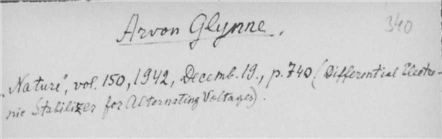 Arvon Glynne.
340
„Nature", vol. 150, 1942, Decemb. 19., p. 740 (Differential Electro-
nic Stabilizer for Alternating Voltages).